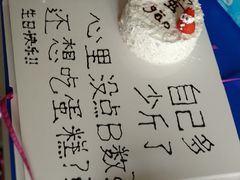 自己多
少斤了
心里没点B数?
还想吃蛋糕?!
生日快乐!!